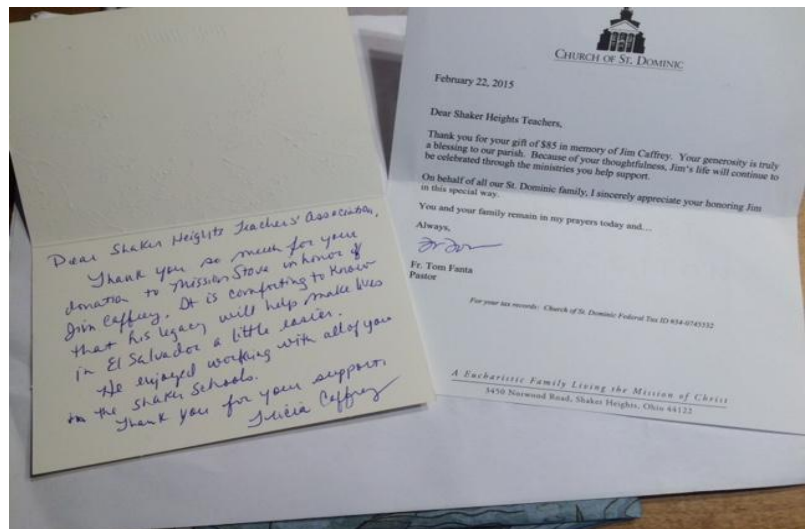 Dear Shaker Heights Teachers' Association,
Thank you so much for your
donation to Mission Stove in honor of
Jim Caffrey. It is comforting to know
that his legacy will help make lives
in El Salvador a little easier.
He enjoyed working with all of you
in the Shaker Schools.
Thank you for your support.
Tricia Caffrey
CHURCH OF ST. DOMINIC
February 22, 2015
Dear Shaker Heights Teachers,
Thank you for your gift of $85 in memory of Jim Caffrey. Your generosity is truly
a blessing to our parish. Because of your thoughtfulness, Jim's life will continue to
be celebrated through the ministries you help support.
On behalf of all our St. Dominic family, I sincerely appreciate your honoring Jim
in this special way.
You and your family remain in my prayers today and…
Always,
Fr. Tom Fanta
Pastor
For your tax records: Church of St. Dominic Federal Tax ID #34-0745332
A Eucharistic Family Living the Mission of Christ
3450 Norwood Road, Shaker Heights, Ohio 44122